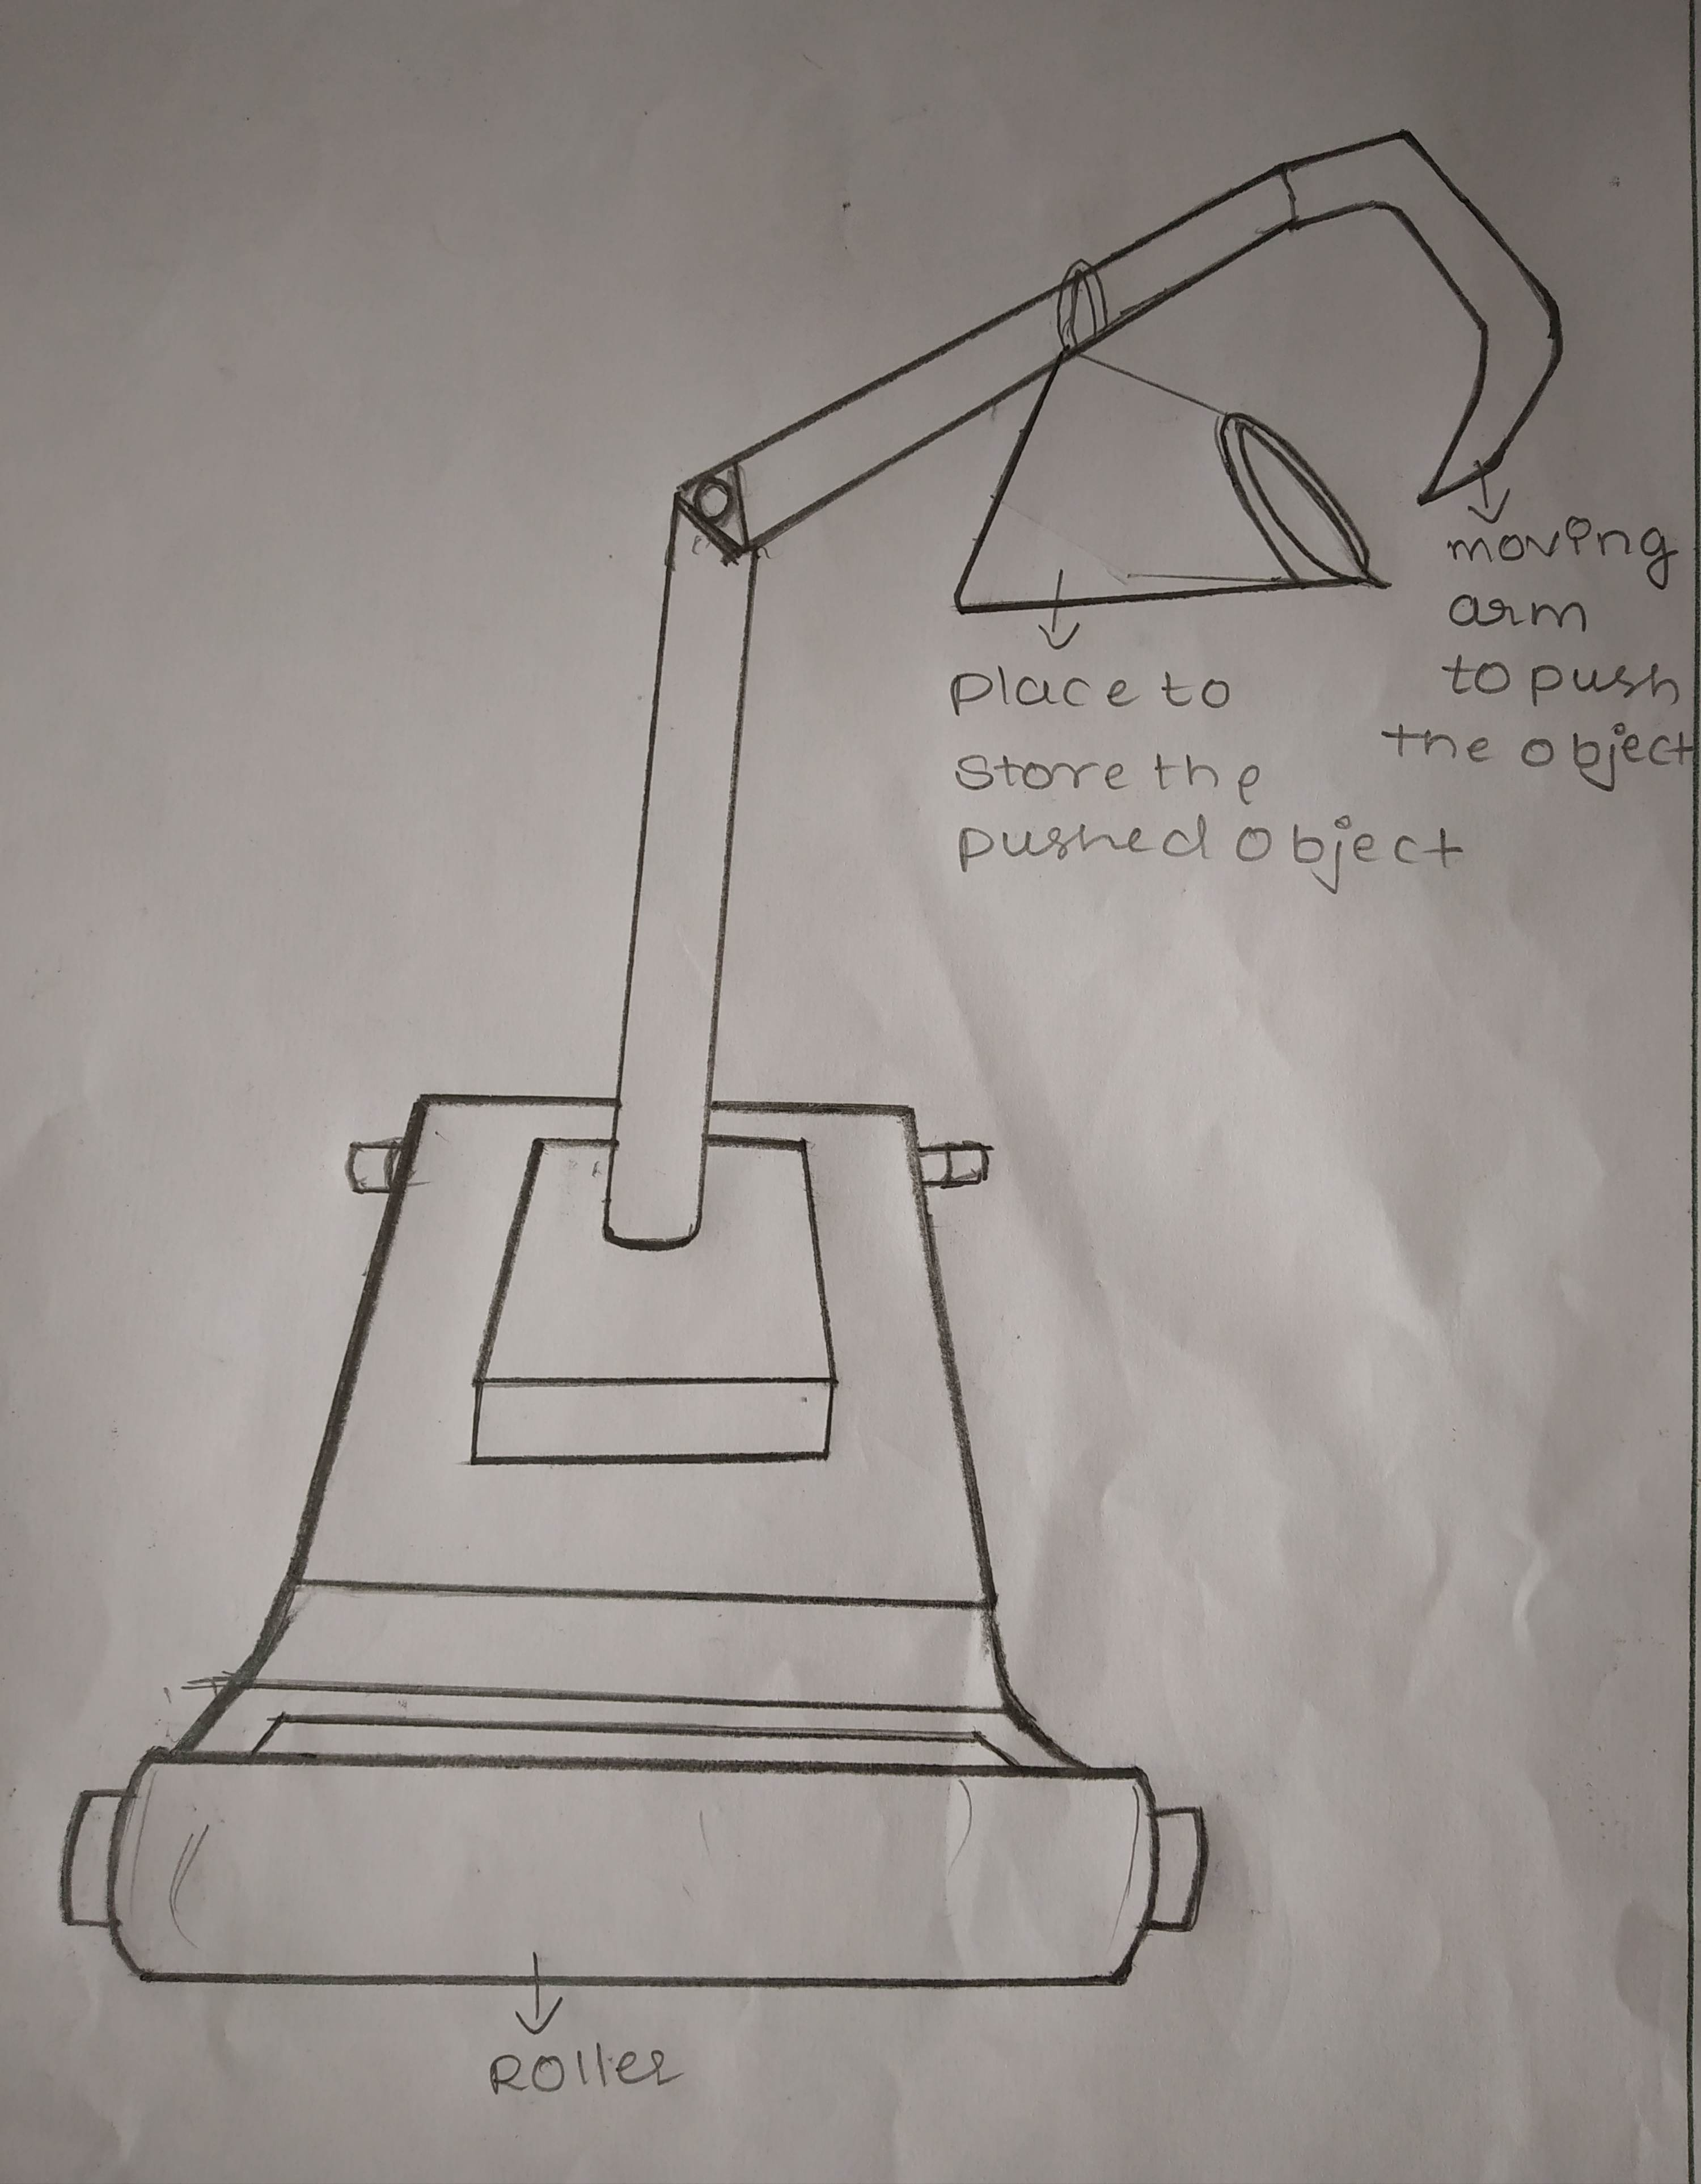 moving
arm
to push
the object
place to
Store the
pushed object
Roller